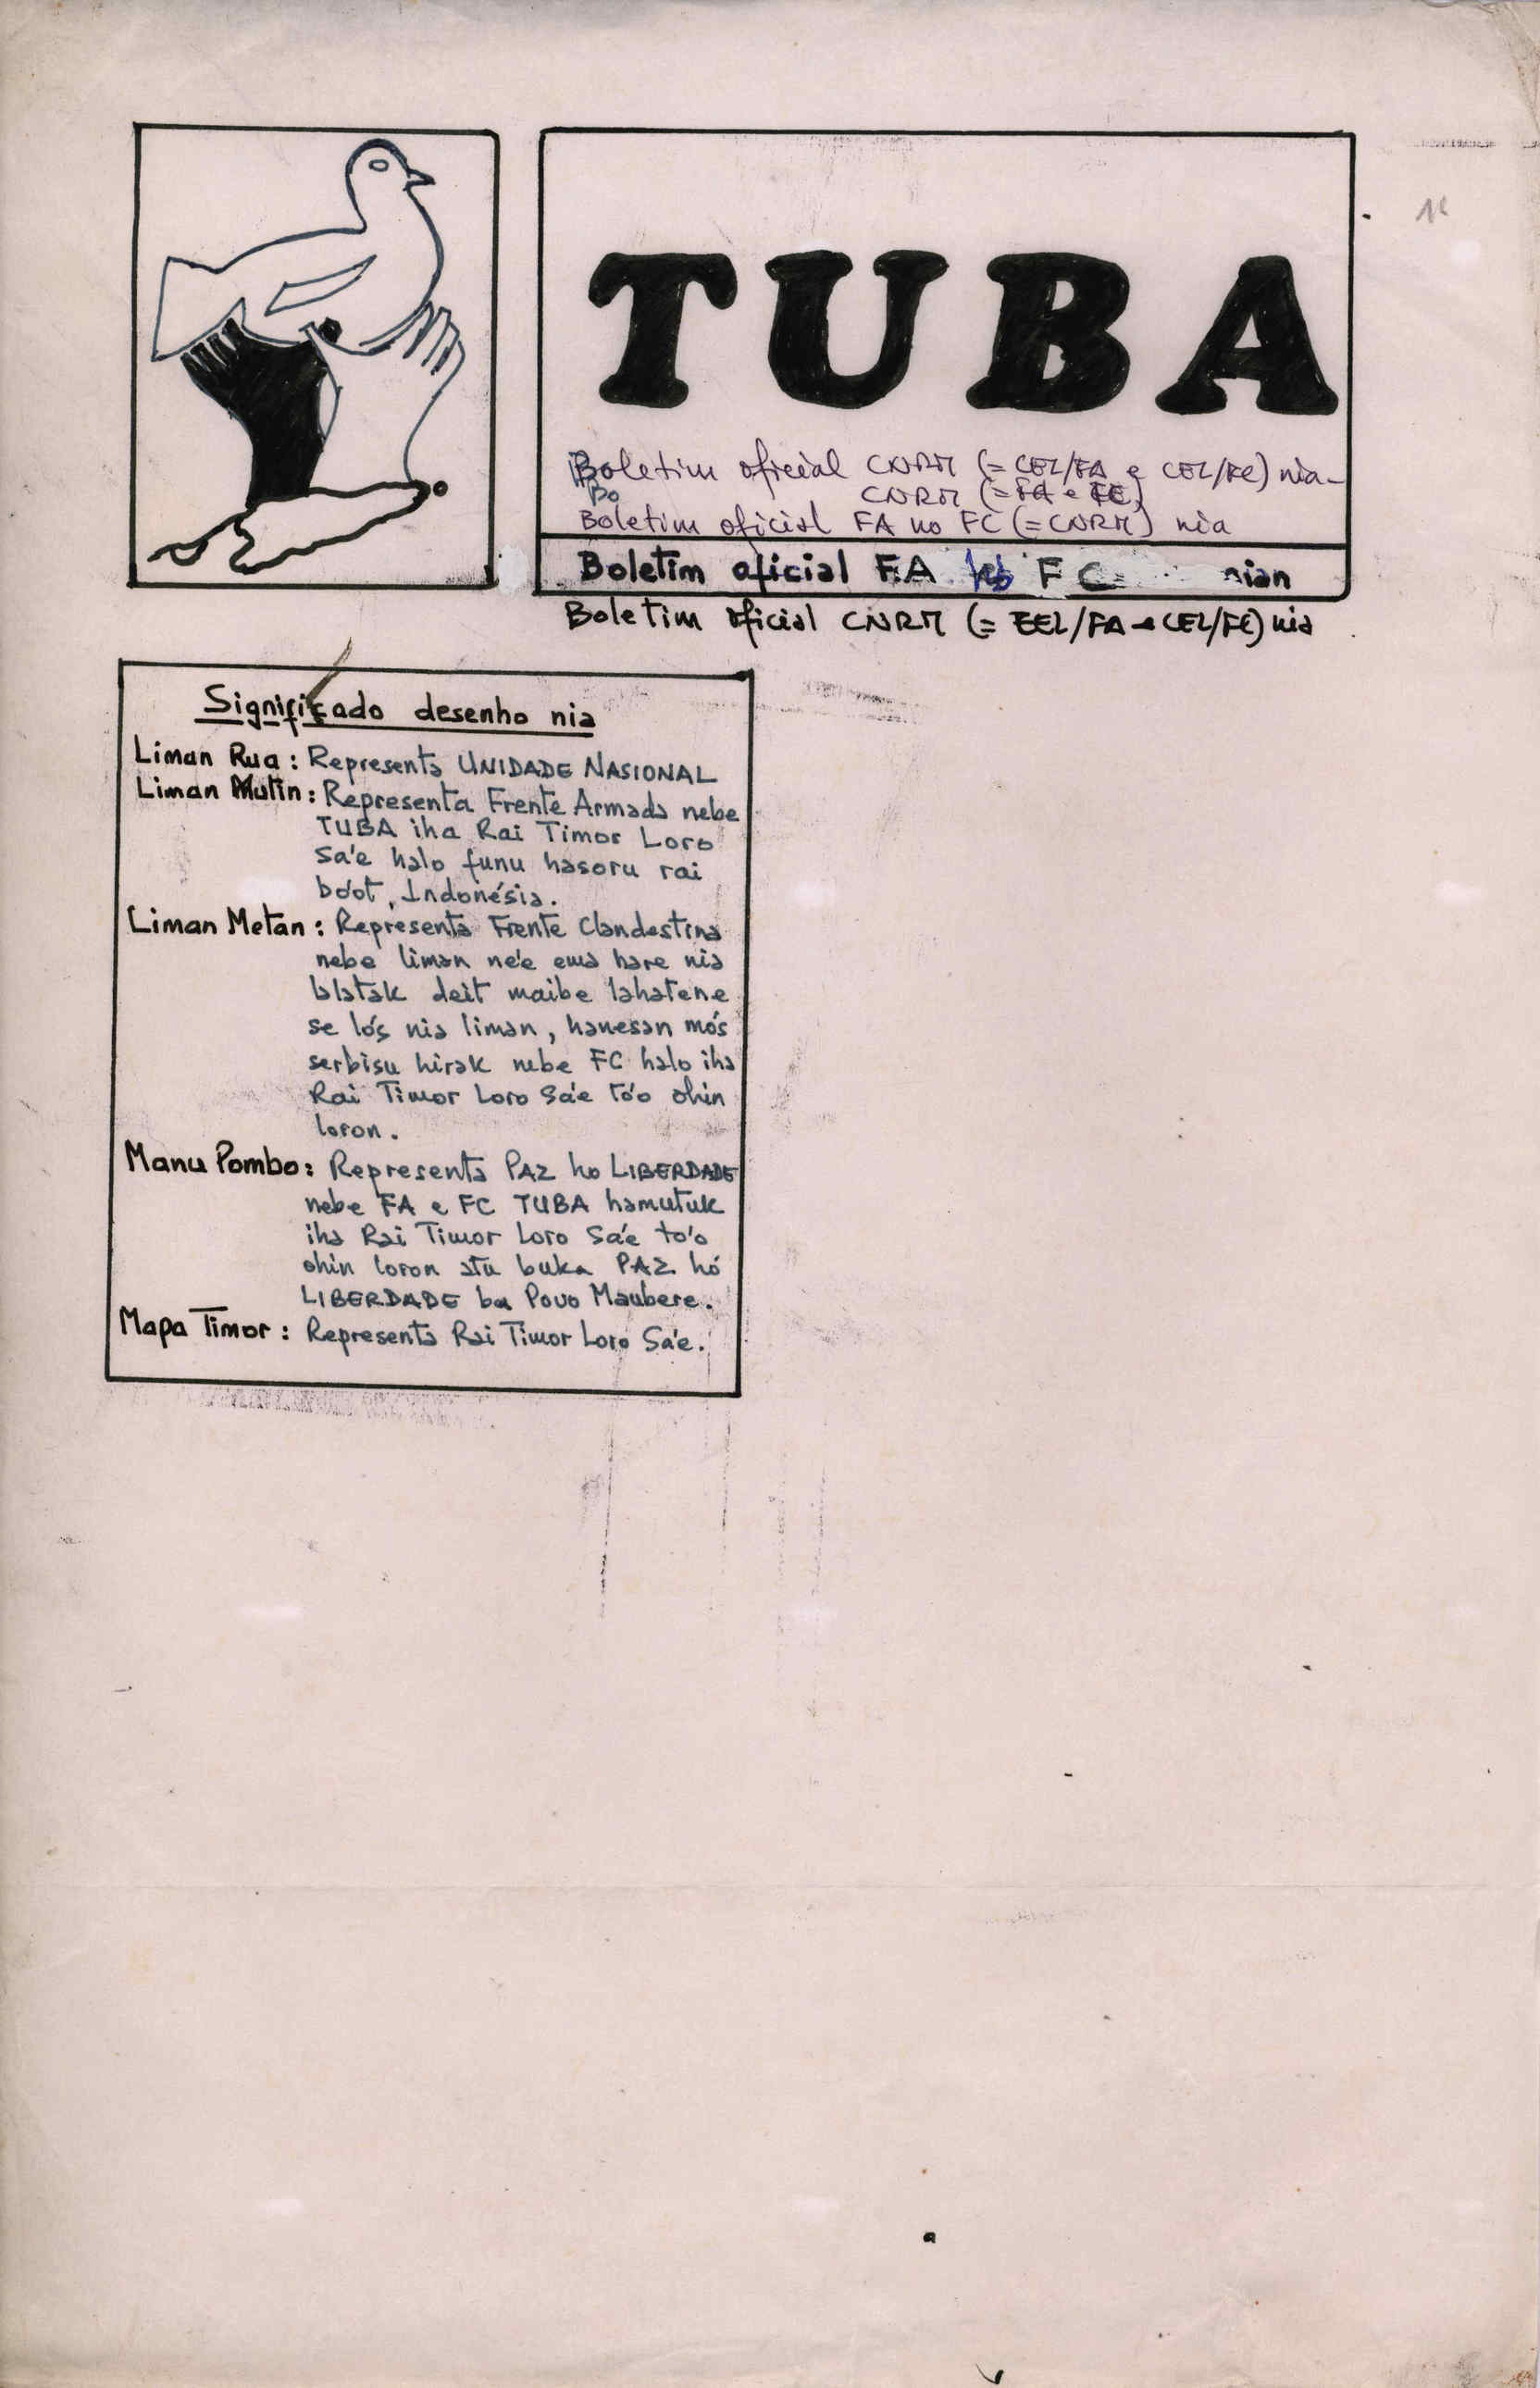 TUBA
Boletim oficial CNRM (= CEL/FA e CEL/FC) nia
Bo CNRM (= FA e FC)
Boletim oficial FA no FC (= CNRM) nia
Boletim oficial FA ho FC nian
Boletim oficial CNRM (= CEL/FA e CEL/FC) nia
Significado desenho nia
Liman Rua: Representa UNIDADE NASIONAL
Liman Mutin: Representa Frente Armada nebe
TUBA iha Rai Timor Loro
Sa'e halo funu hasoru rai
bo'ot, Indonésia.
Liman Metan: Representa Frente Clandestina
nebe liman ne'e ema hare nia
lalatak deit maibe lahatene
se lo'ς nia liman, hanesan mo's
serbisu hirak nebe FC halo iha
Rai Timor Loro Sa'e to'o ohin
loron.
Manu Pombo: Representa PAZ ho LIBERDADE
nebe FA e FC TUBA hamutuk
iha Rai Timor Loro Sa'e to'o
ohin loron atu buka PAZ hó
LIBERDADE ba Povo Maubere.
Mapa Timor: Representa Rai Timor Loro Sa'e.